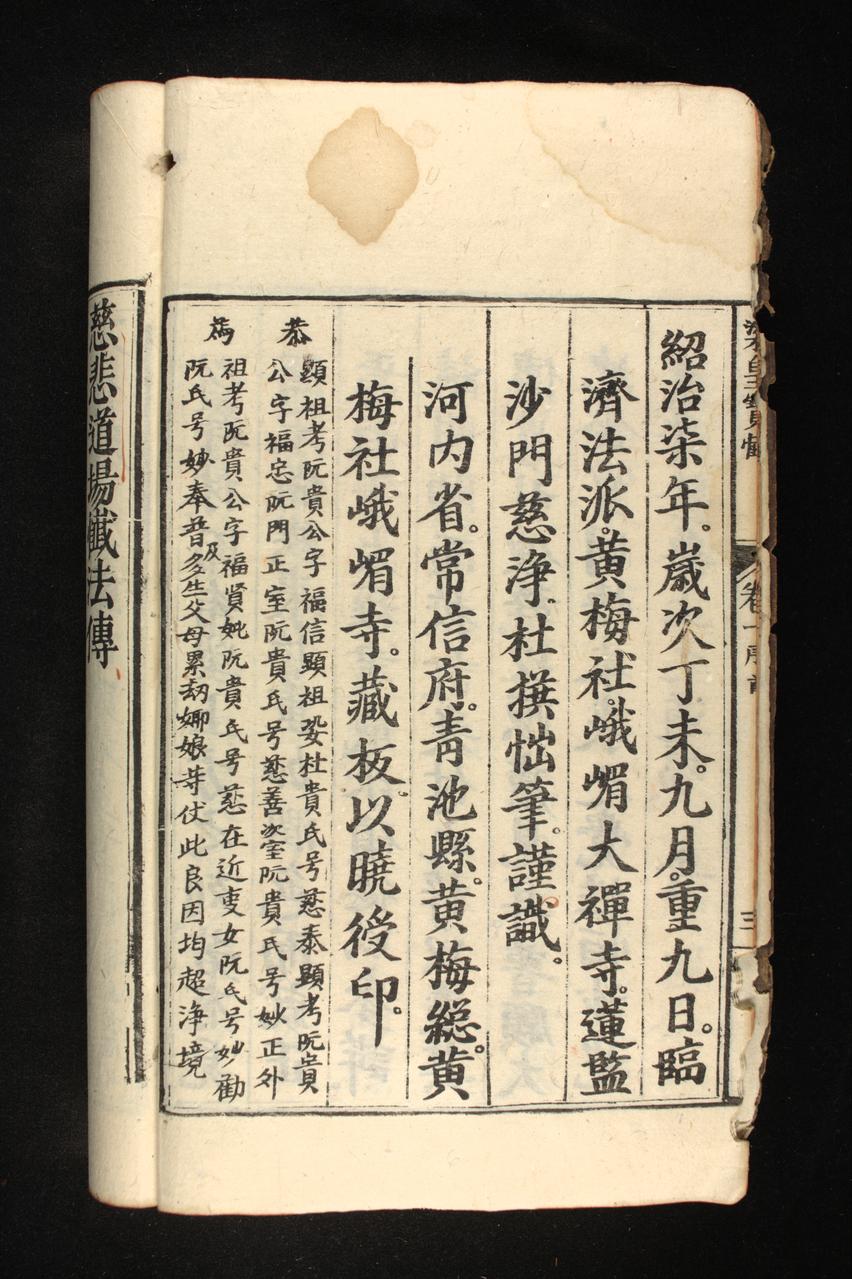 卷一序
三
紹治柒年。歲次丁未。九月。重九日。臨
濟法派。黃梅社。峨嵋大禪寺。蓮監
沙門慈淨。杜撰惱筆。謹識。
河内省。常信府。青池縣。黃梅總。黃
梅社峨嵋寺。藏板。以曉後印。
恭
顯祖考阮貴公字福信顯祖妣杜貴氏号慈泰顯考阮貴
公字福忠阮門正室阮貴氏号慈善次室阮貴氏号妙正外
為
祖考阮貴公字福賢妣阮貴氏号慈在近事女阮氏号妙勸
阮氏号妙奉普及多生父母累劫娘等仗此良因均超淨境
慈悲道場懺法傳